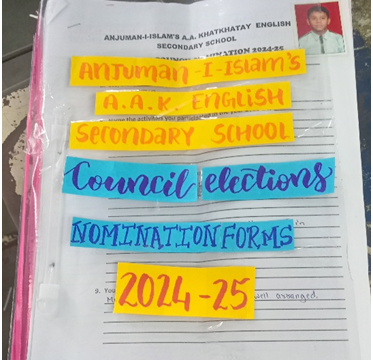 ANJUMAN-I-ISLAM'S A.A. KHATKHATAY ENGLISH
SECONDARY SCHOOL
NATION 2024-25
ANJUMAN-I-ISLAM'S
A.A.K. ENGLISH
SECONDARY SCHOOL
Council elections
NOMINATION FORMS
in
2024-25
9. You
well arranged.